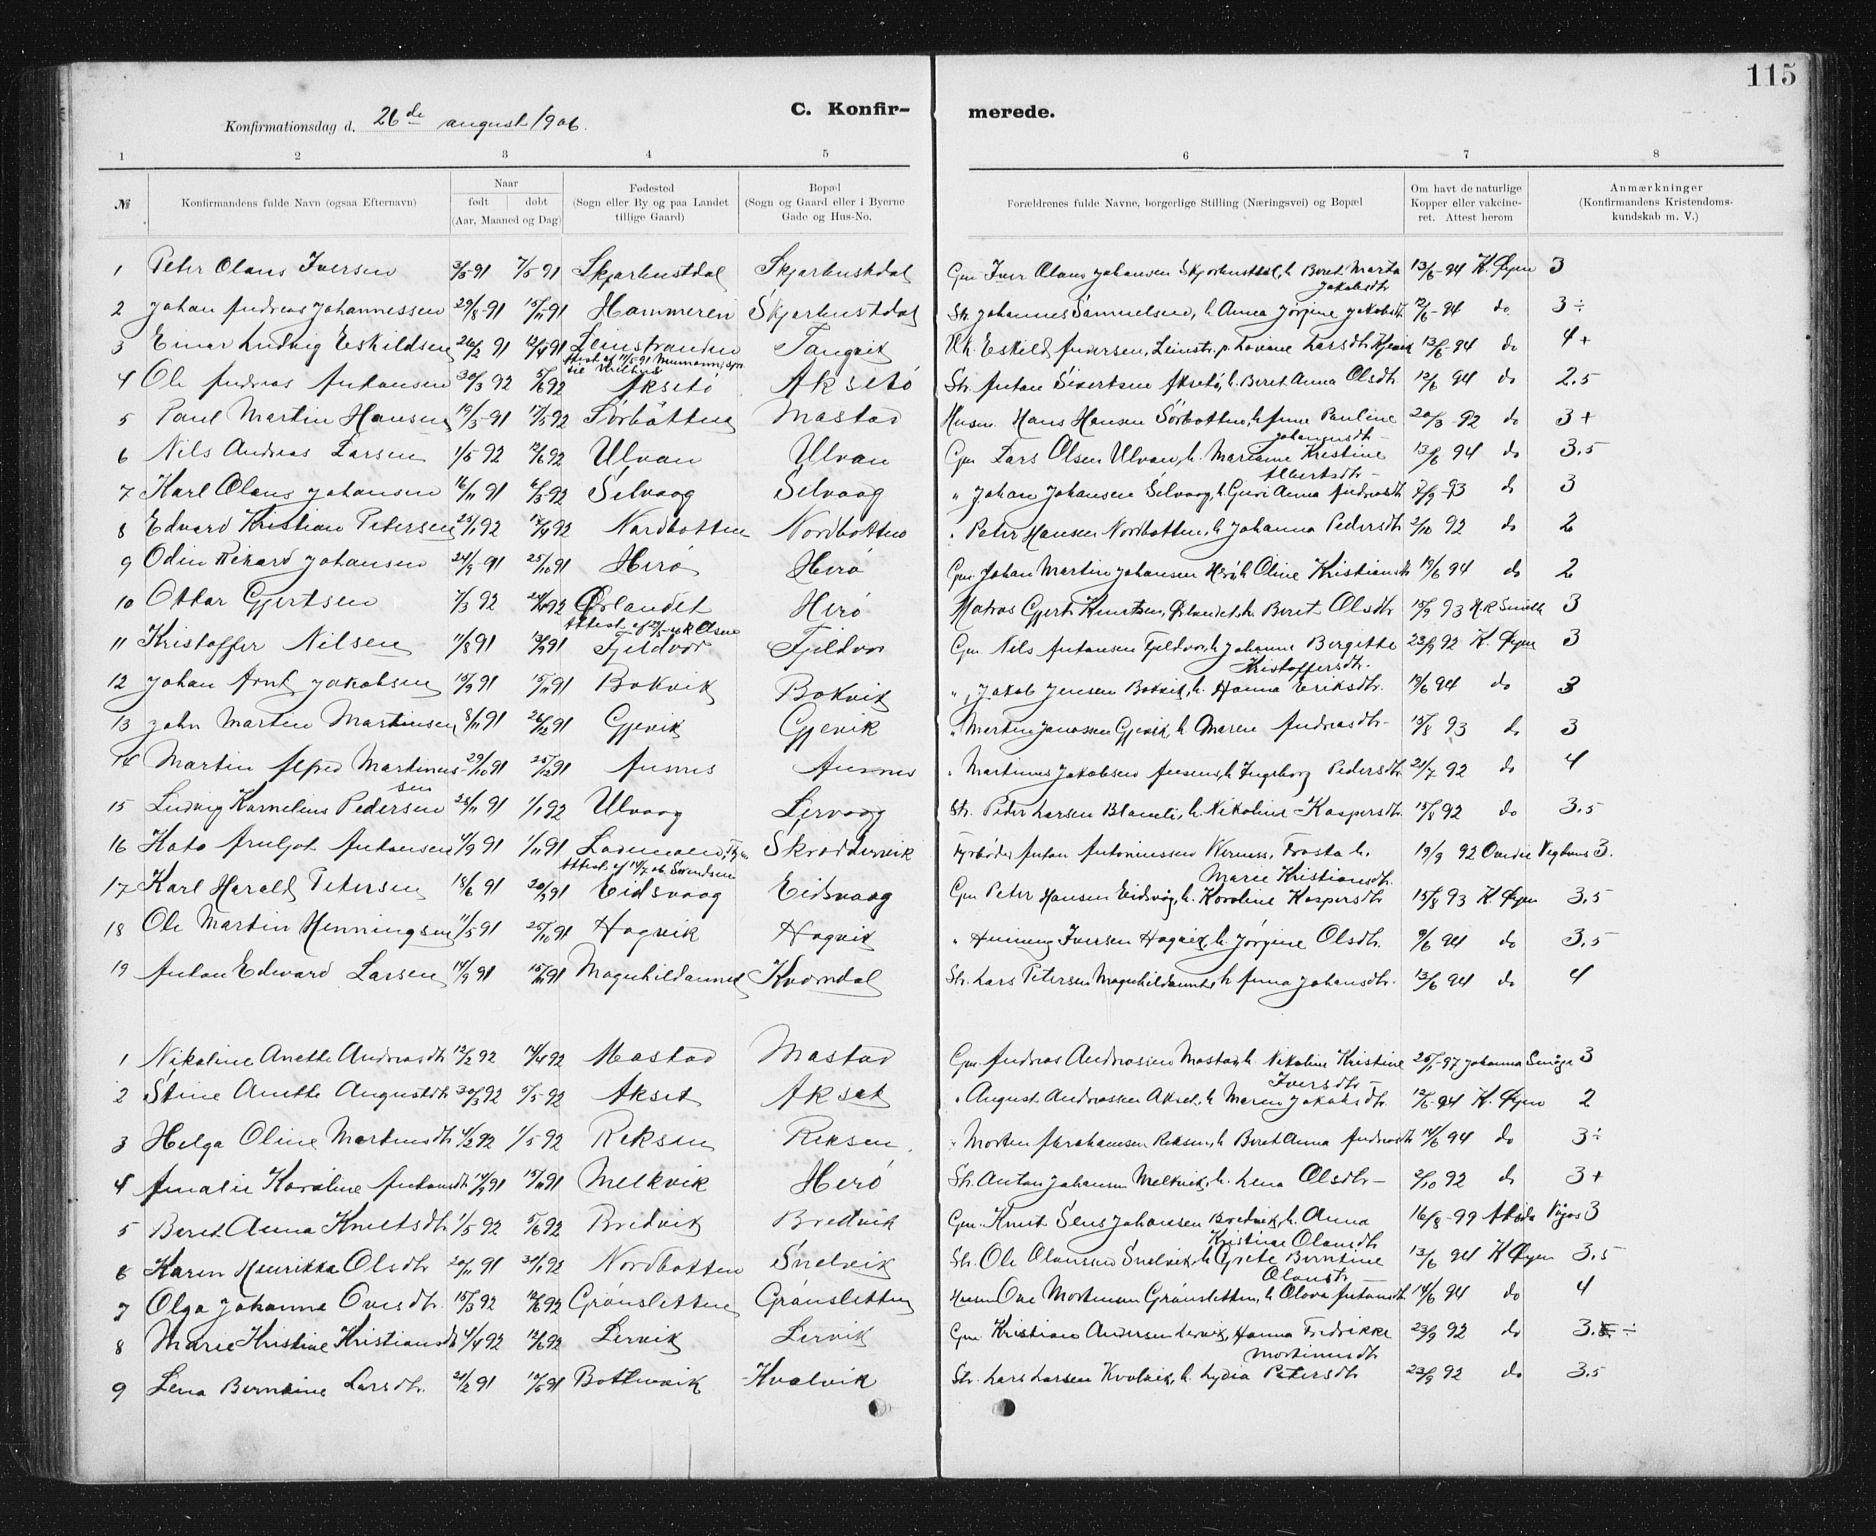 115
C. Konfir-
merede.
Konfirmationsdag d. 26de august 1906.
1 2 3 4 5 6 7 8
№
Konfirmandens fulde Navn (ogsaa Efternavn)
Naar
født døbt
(Aar, Maaned og Dag)
Fødested
(Sogn eller By og paa Landet
tillige Gaard)
Bopæl
(Sogn og Gaard eller i Byerne
Gade og Hus-No.
Forældrenes fulde Navne, borgerlige Stilling (Næringsvei) og Bopæl
Om havt de naturlige
Kopper eller vakcine-
ret. Attest herom
Anmærkninger
(Konfirmandens Kristendoms-
kundskab m. V.)
1 Peter Olaus Iversen 3/5-91 7/5-91 Skjærbustdal Skjærbustdal Gm Iver Olaus Johansen Skjærbustdal, h. Beret Marta 13/6-94 K. Øyen 3
Jakobsdtr
2 Johan Andreas Johannessen 29/8-91 15/11-91 Hammeren Skjærbustdal Str. Johannes Samuelsen, h. Anna Jørgine Jakobsdt 12/6-94 do 3÷
3 Einar Ludvig Eskildsen 26/2 91 12/4 91 Leinstranden Tangvik Eskild Andersen, Leinstr. Larsdtr 13/6-94 do 4+
4 Ole Andreas Antonsen 30/3 92 5/6 92 Aksetø Aksetø Str. Anton Sivertsen Aksetø, h. Beret Anna Olsdtr 12/6 94 do 2.5
5 Paul Martin Hansen 19/3-91 17/5 92 Sørbotten Mastad Husm. Hans Hansen Sørbotten, h. Anne Pauline 20/8-92 do 3+
Johannsdtr -
6 Nils Andreas Larsen 1/5 92 12/6 92 Ulvan Ulvan Gm Lars Olsen Ulvan, h. Marianne Kristine 13/6 94 do 3.5
Albertsdtr -
7 Karl Olaus Johansen 16/11 91 6/3-92 Selvaag Selvaag " Johan Johansen Selvaag, h. Guri Anna Andreasdt 7/9-93 do 3
8 Edvard Kristian Petersen 24/1 92 17/4 92 Nordbotten Nordbotten " Peter Hansen Nordbotten, h. Johanna Pedersdtr 2/10 92 do 2
9 Odin Rikard Johansen 24/9-91 25/10 91 Herø Herø Gm Johan Martin Johansen Herø, h. Oline Kristiansdt 19/6 94 do 2
10 Ottar Gjertsen 7/3 92 24/6 92 Ørlandet Herø Matros Gjert Knutsen, Ørlandet, h. Beret Olsdtr 15/9 93 3
11 Kristoffer Nilsen 11/8 91 13/9 91 Fjeldvær Fjeldvær Gm. Nils Antonsen Fjeldvær, h. Johanna Bergitte 23/9 92 K. Øyen 3
Kristoffersdtr.
12 Johan Arnt Jakobsen 15/9 91 15/11 91 Bokvik Bokvik " Jakob Jensen Bokvik, h. Hanna Eriksdtr. 19/6 94 do 3
13 John Martin Martinsen 8/11 91 26/12 91 Gjevik Gjevik " Martin Janossen Gjevik, h. Maren Andreasdtr- 15/8 93 do 3
14 Martin Alfred Martinus- 29/10 91 25/12 91 Ansnes Ansnes " Martinus Jakobsen Ansnes, h. Ingeborg Pedersdtr 21/7 92 do 4
sen
15 Ludvig Kornelius Pedersen 23/11 91 1/1 92 Ulvaag Lervaag Str. Peder Larsen Blomli, h. Nikoline Kaspersdtr. 15/8 92 do 3.5
16 Antonsen 4/9 91 1/11 91 Lademoen Anton Antoniussen Werness, Frosta h. 19/9 92 3.
Marie Kristiansdtr.
17 Karl Harald Petersen 18/6 91 20/9 91 Eidsvaag Eidsvaag Gm Peter Hansen Eidsvåg, h. Karoline Kaspersdtr 15/8 93 K. Øyen 3.5
18 Ole Martin Henningsen 11/5 91 25/10 91 Hagvik Hagvik " Henning Iversen Hagvik, h. Jørgine Olsdtr. 9/6 94 do 3.5
19 Anton Edvard Larsen 14/9 91 15/11 91 Magnhildaunet Kværndal Str. Lars Petersen Magnhildaunet, h. Anna Johansdtr. 13/6 94 do 4
1 Nikoline Anette Andreasdtr 12/2 92 14/4 92 Mastad Mastad Gm Andreas Andreassen Mastad, h. Nikoline Kristine 26/1-97 Johanna 3
Iversdtr -
2 Stine Anette Augustdtr 30/3 92 5/5-92 Akset Akset " August Andreassen Akset, h. Maren Jakobsdtr. 12/6-94 K. Øyen 2
3 Helga Oline Mortensdtr 4/2 92 1/5 92 Reksen Reksen " Morten Abrahamsen Reksen, h. Beret Anna Andreasdt 14/6 94 do 3÷
4 Amalie Karoline Antonsdtr 14/9 91 15/11 91 Melkvik Herø Str. Anton Johansen Melkvik, h. Lena Olsdtr- 2/10 92 do 3+
5 Beret Anna Knutsdtr 1/5 92 5/6 92 Bredvik Bredvik Gm. Knut Sens Johansen Bredvik, h. Anna 16/8-99 3
Kristine Olausdtr
6 Karen Henrikka Olsdtr 20/11 91 31/1 92 Nordbotten Snelvik Str. Ole Olaussen Snelvik, h. Grete Berntine 13/6 94 K Øyen 3.5
Olausdtr -
7 Olga Johanne Ovesdtr. 15/3 92 12/6 92 Grønsletten Grønsletten Husm Ove Mortensen Grønsletten, h. Olava Antonsdtr 14/6 94 do 4
8 Marie Kristine Kristiansdt 4/4 92 12/6 92 Lervik Lervik Gm Kristian Andersen Lervik, Hanna Fredrikke 23/9 92 do 3. ÷
Martinusdtr
9 Lena Berntine Larsdtr. 21/2 91 10/5 91 Bottenvik Kvalvik Str. Lars Larsen Kvalvik, h. Lydia Petersdtr 23/9 92 do 3.5